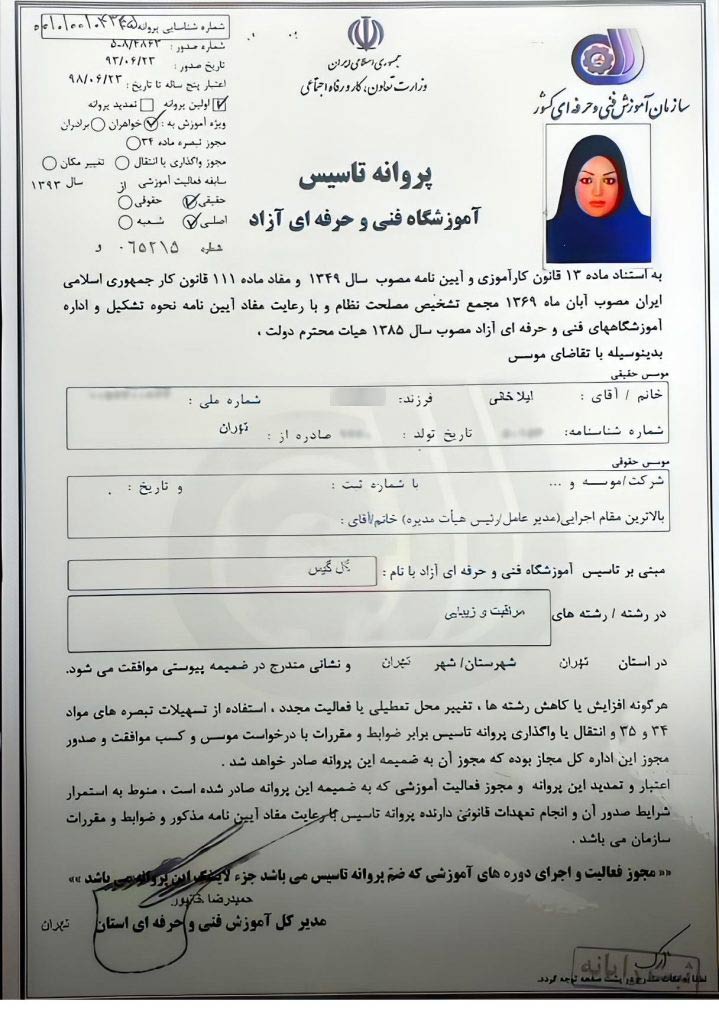 جمهوری اسلامی ایران
وزارت تعاون، کار و رفاه اجتماعی
سازمان آموزش فنی و حرفه ای کشور
شماره شناسایی پروانه
شماره صدور : ۵۰۸/۴۸۶۳
تاریخ صدور : ۹۳/۰۶/۲۳
اعتبار پنج ساله تا تاریخ : ۹۸/۰۶/۲۳
اولین پروانه تمدید پروانه
ویژه آموزش به : خواهران برادران
مجوز تبصره ماده ۳۴
مجوز واگذاری یا انتقال تغییر مکان
سابقه فعالیت آموزشی از سال ۱۳۹۳
حقیقی حقوقی
اصلی شعبه
شماره ۰۶۵۲۱۵ و
پروانه تاسیس
آموزشگاه فنی و حرفه ای آزاد
به استناد ماده ۱۳ قانون کارآموزی و آیین نامه مصوب سال ۱۳۴۹ و مفاد ماده ۱۱۱ قانون کار جمهوری اسلامی
ایران مصوب آبان ماه ۱۳۶۹ مجمع تشخیص مصلحت نظام و با رعایت مفاد آیین نامه نحوه تشکیل و اداره
آموزشگاههای فنی و حرفه ای آزاد مصوب سال ۱۳۸۵ هیات محترم دولت ،
بدینوسیله با تقاضای موسس
موسس حقیقی
خانم / آقای : لیلا خانی فرزند: شماره ملی :
شماره شناسنامه: تاریخ تولد : صادره از : تهران
موسس حقوقی
شرکت/موسسه و ... با شماره ثبت : و تاریخ : .
بالاترین مقام اجرایی(مدیر عامل/رئیس هیأت مدیره) خانم/آقای :
مبنی بر تاسیس آموزشگاه فنی و حرفه ای آزاد با نام : گل گیس
در رشته / رشته های مراقبت و زیبایی
در استان تهران شهرستان/ شهر تهران و نشانی مندرج در ضمیمه پیوستی موافقت می شود.
هرگونه افزایش یا کاهش رشته ها ، تغییر محل تعطیلی یا فعالیت مجدد ، استفاده از تسهیلات تبصره های مواد
۳۴ و ۳۵ و انتقال یا واگذاری پروانه تاسیس برابر ضوابط و مقررات با درخواست موسس و کسب موافقت و صدور
مجوز این اداره کل مجاز بوده که مجوز آن به ضمیمه این پروانه صادر خواهد شد .
اعتبار و تمدید این پروانه و مجوز فعالیت آموزشی که به ضمیمه این پروانه صادر شده است ، منوط به استمرار
شرایط صدور آن و انجام تعهدات قانونی دارنده پروانه تاسیس با رعایت مفاد آیین نامه مذکور و ضوابط و مقررات
سازمان می باشد .
«« مجوز فعالیت و اجرای دوره های آموزشی که ضم پروانه تاسیس می باشد جزء لاینفک این پروانه می باشد »»
حمیدرضا خانپور
مدیر کل آموزش فنی و حرفه ای استان تهران
ثبت رایانه
لطفا به نکات مندرج در پشت صفحه توجه گردد.